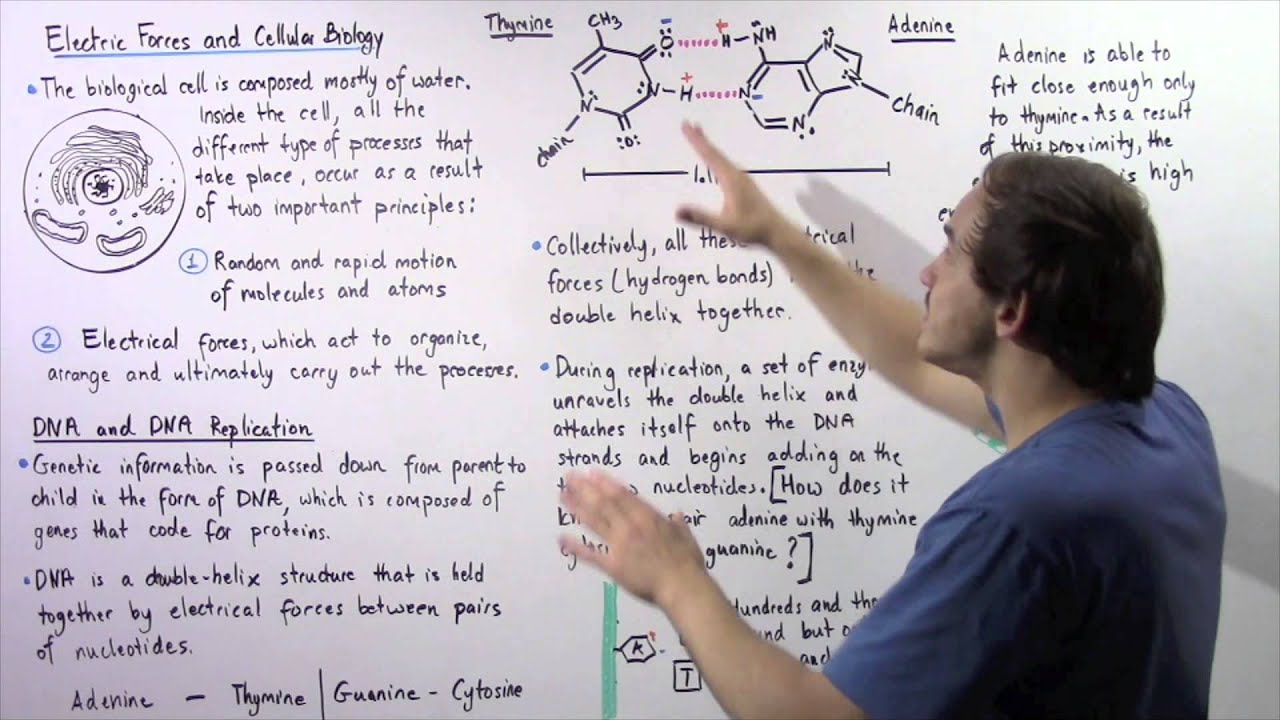 Electric Forces and Cellular Biology
• The biological cell is composed mostly of water.
Inside the cell, all the
different type of processes that
take place, occur as a result
of two important principles:
① Random and rapid motion
of molecules and atoms
② Electrical forces, which act to organize,
arrange and ultimately carry out the processes.
DNA and DNA Replication
• Genetic information is passed down from parent to
child in the form of DNA, which is composed of
genes that code for proteins.
• DNA is a double-helix structure that is held
together by electrical forces between pairs
of nucleotides.
Adenine – Thymine | Guanine – Cytosine
Thymine
Adenine
CH3
O
H
NH
N
N
N
H
N
N
N
O
chain
chain
+
+
–
–
• Collectively, all
forces (hydrogen bonds)
double helix together.
• During replication, a set of
unravels the double helix and
attaches itself onto the DNA
strands and begins adding on the
nucleotides. [How does it
adenine with thymine
guanine?]
and
but
and
A
+
–
T
Adenine is able to
fit close enough only
to thymine. As a result
of this proximity, the
is high